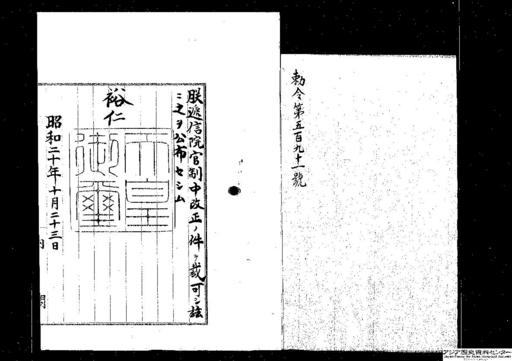 勅令第五百九十一號
朕遞信院官制中改正ノ件ヲ裁可シ玆
ニ之ヲ公布セシム
裕仁
天皇
御璽
昭和二十年十月二十三日
アジア歴史資料センター